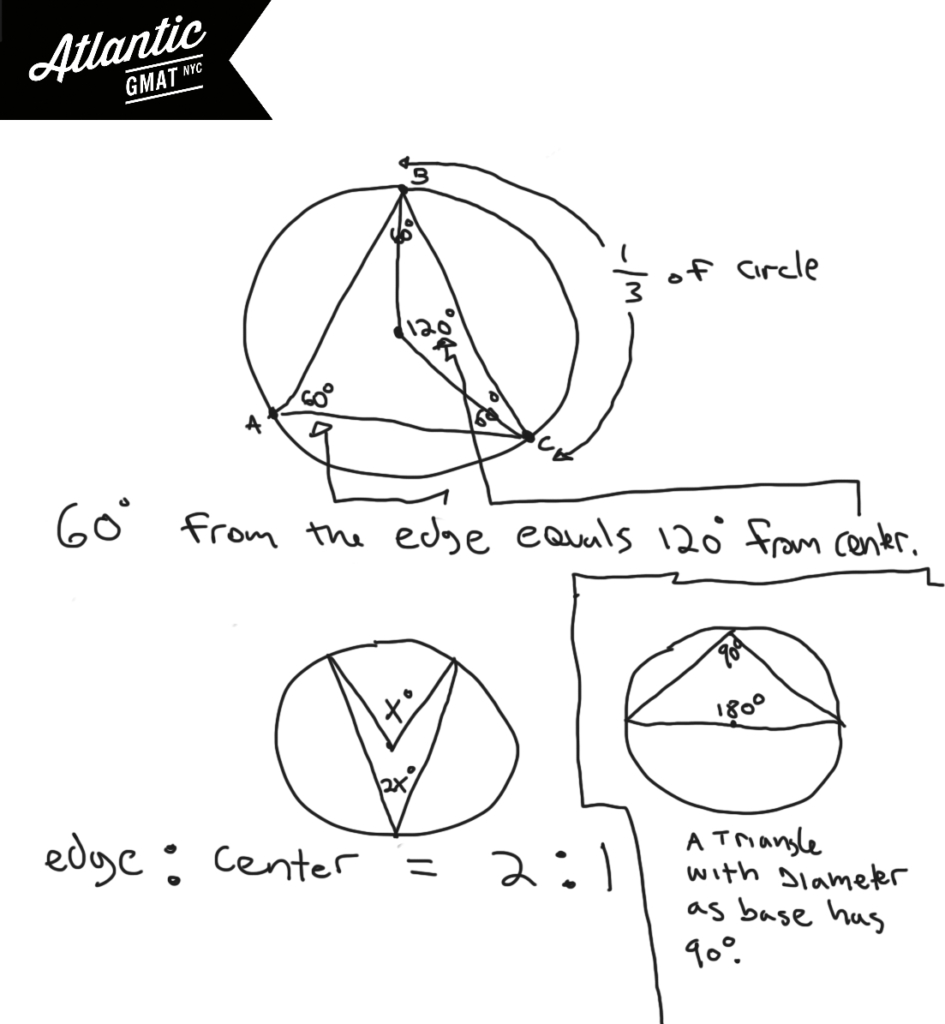 Atlantic
GMAT NYC
B
60°
1/3 of circle
120°
60°
60°
A
C
60° from the edge equals 120° from center.
90°
x°
180°
2x°
edge : center = 2 : 1
A Triangle
with Diameter
as base has
90°.